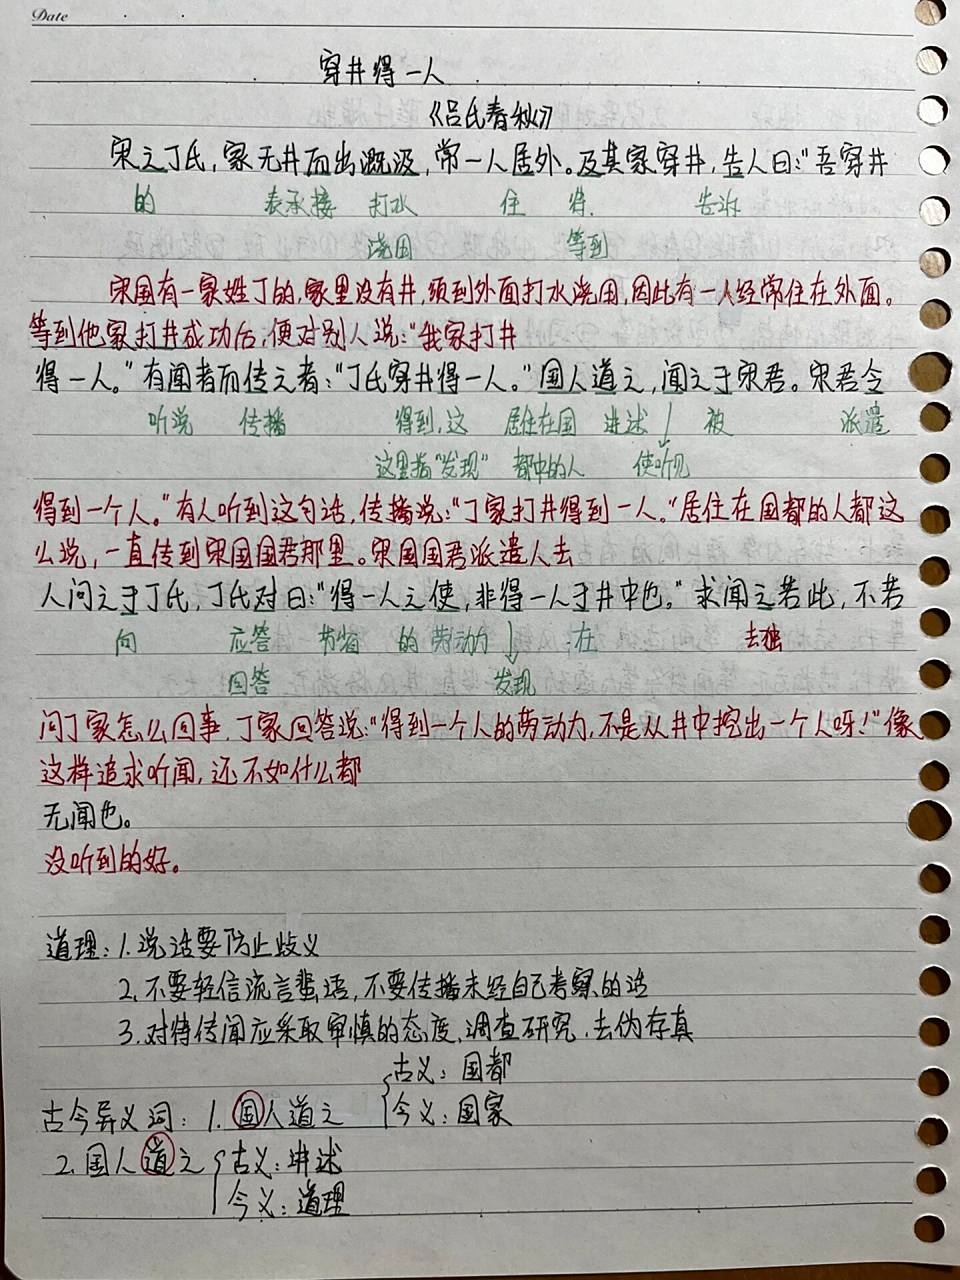 Date
穿井得一人
《吕氏春秋》
宋之丁氏，家无井而出溉汲，常一人居外。及其家穿井，告人曰："吾穿井
的 表承接 打水 住 待 告诉
浇田 等到
宋国有一家姓丁的，家里没有井，须到外面打水浇田，因此有一人经常住在外面。
等到他家打井成功后，便对别人说："我家打井
得一人。"有闻者而传之者："丁氏穿井得一人。"国人道之，闻之于宋君。宋君令
听说 传播 得到，这 居住在国 讲述 被 派遣
这里指"发现" 都中的人 使听见
得到一个人。"有人听到这句话，传播说："丁家打井得到一人。"居住在国都的人都这
么说，一直传到宋国国君那里。宋国国君派遣人去
人问之于丁氏，丁氏对曰："得一人之使，非得一人于井中也。"求闻之若此，不若
向 应答 节省 的 劳动力 在 去独
回答 发现
问丁家怎么回事，丁家回答说："得到一个人的劳动力，不是从井中挖出一个人呀！"像
这样追求听闻，还不如什么都
无闻也。
没听到的好。
道理：1.说话要防止歧义
2.不要轻信流言蜚语，不要传播未经自己考察的话
3.对待传闻应采取审慎的态度、调查研究、去伪存真
古义：国都
古今异义词：1.国人道之 今义：国家
2.国人道之 古义：讲述
今义：道理